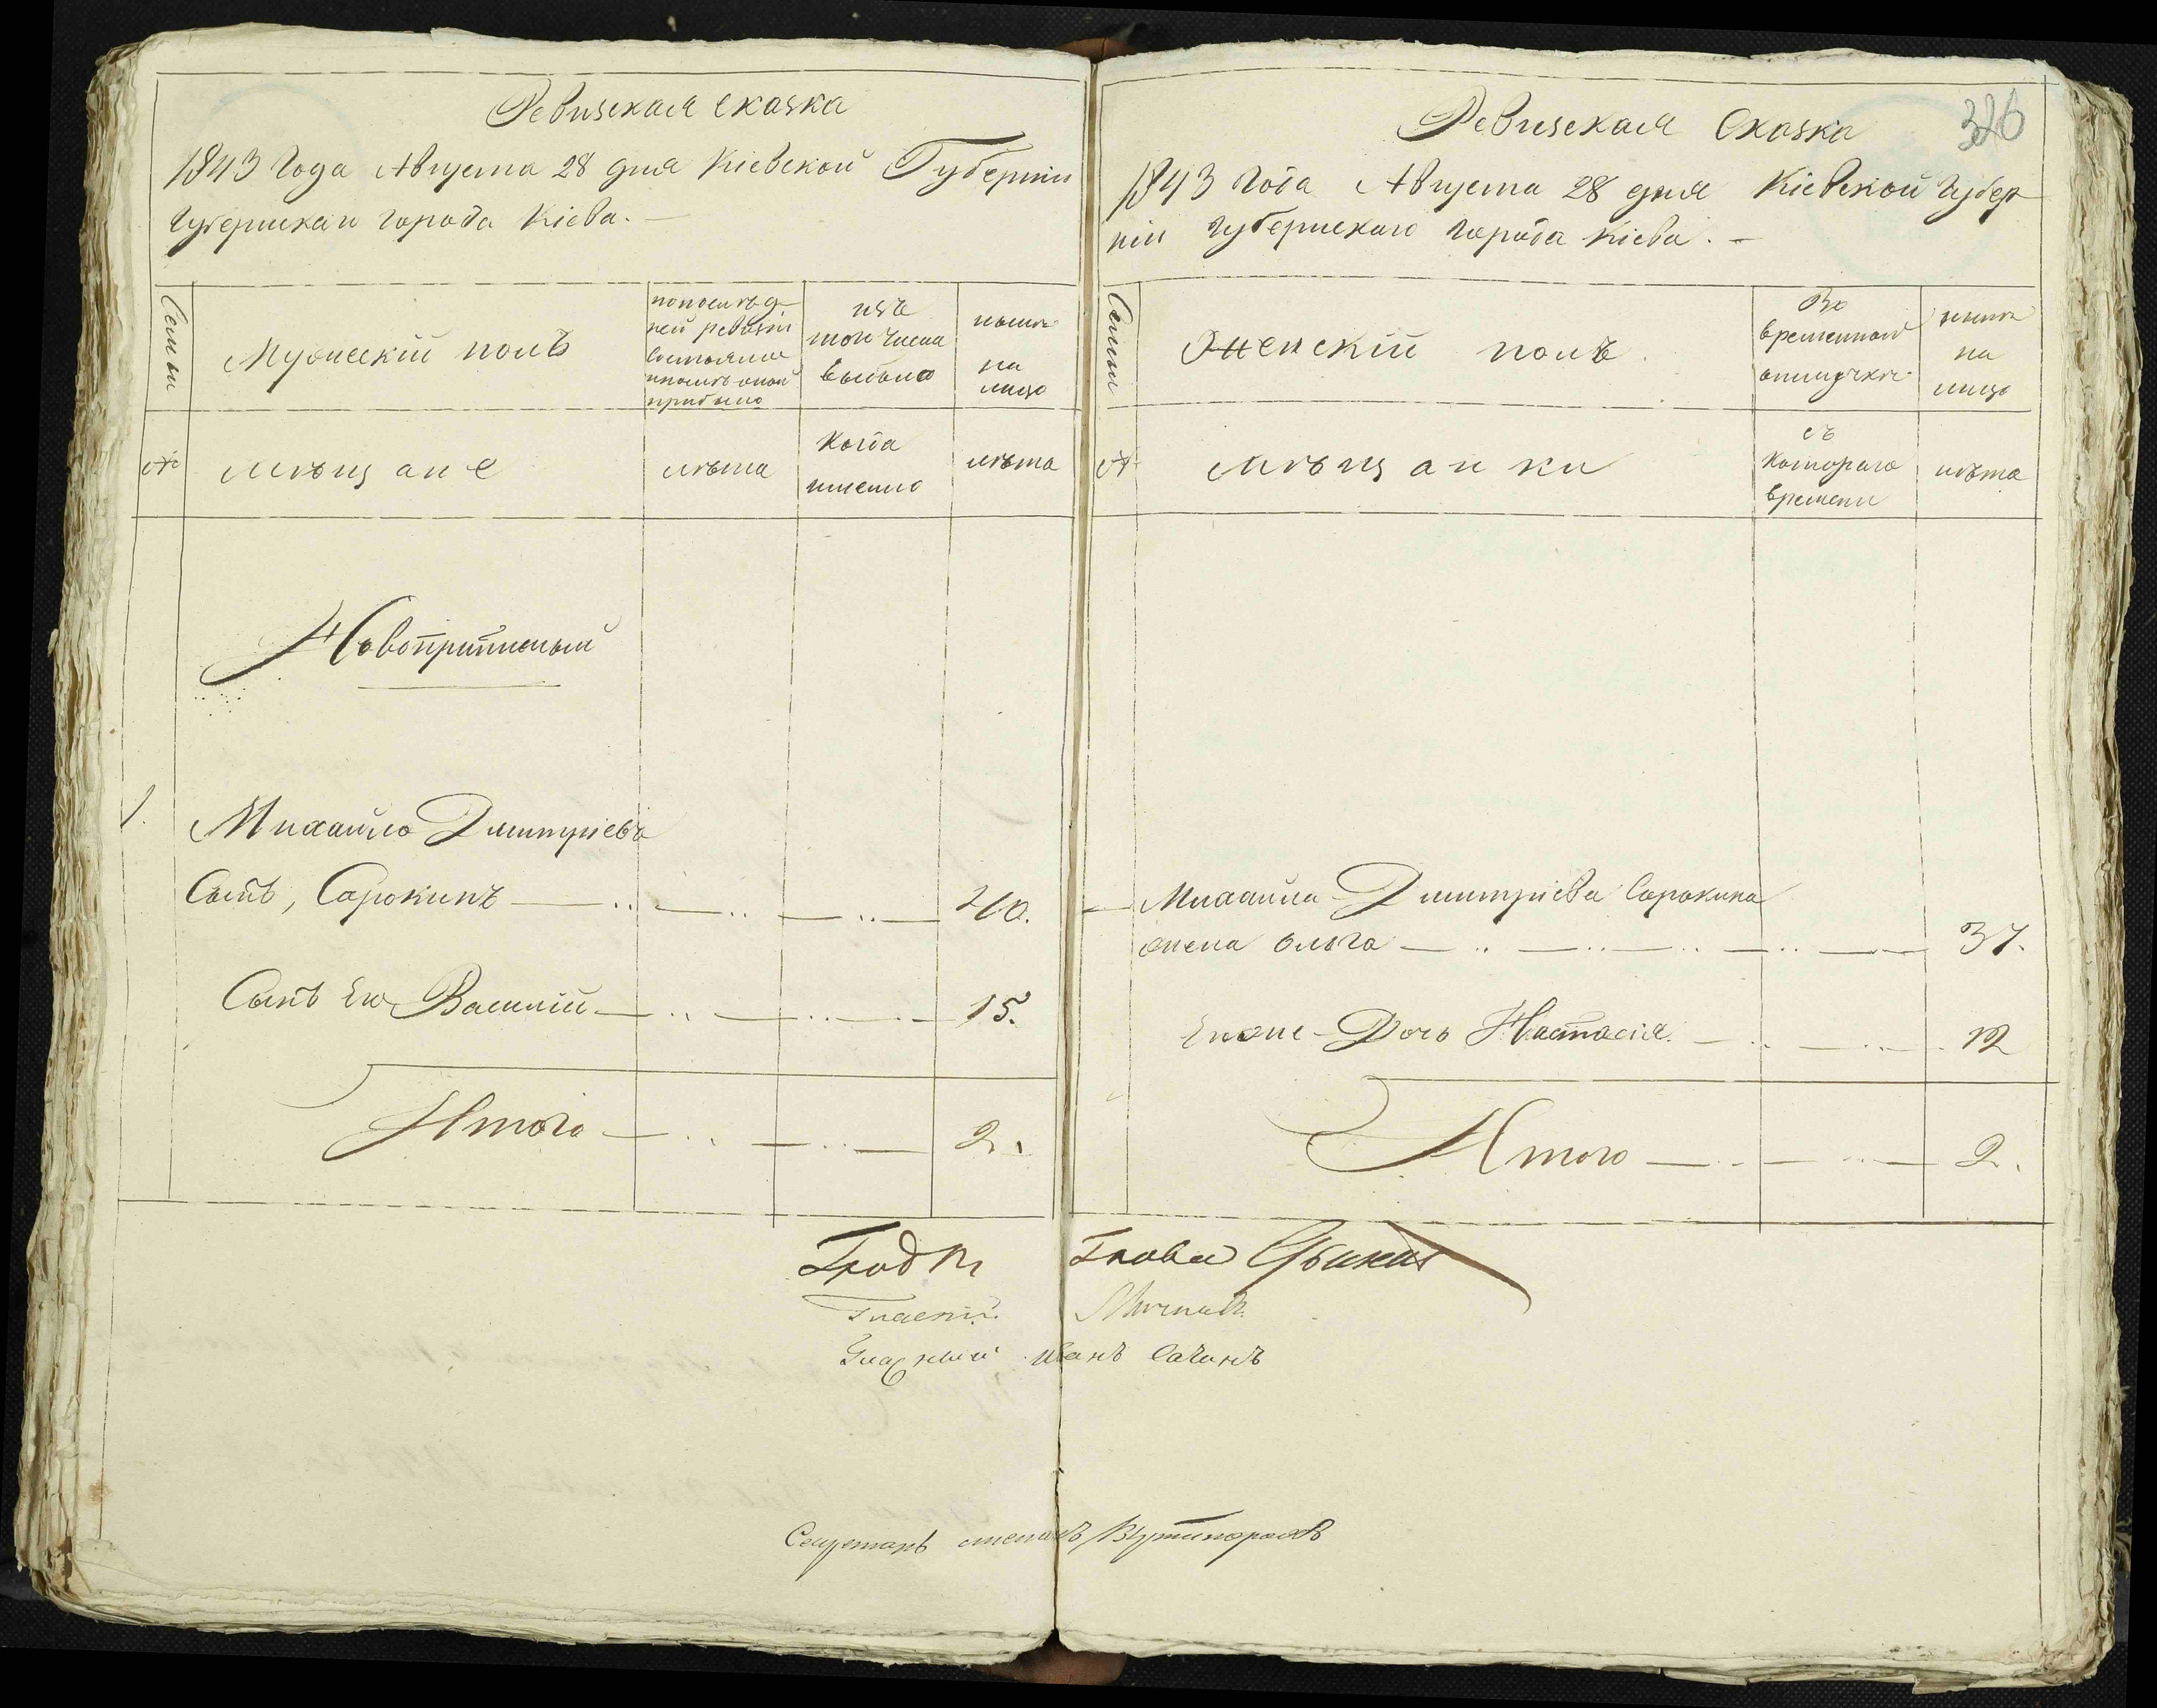 Ревизская сказка
1843 Года Августа 28 дня Кіевской Губерніи
Губернскаго города Кіева. —
Семьи
Мужескій полъ
по послѣд-
ней ревизіи
состояло и
послѣ оной
прибыло
изъ
того числа
выбыло
нынѣ
на
лицо
№
мѣщане
лѣта
когда
именно
лѣта
Новоприписный
1.
Михайло Дмитріевъ
Сынъ, Сорокинъ 40.
Сынъ Его Василій 15.
Итого 2.
326
Ревизская Сказка
1843 Года Августа 28 дня Кіевской Губер
ніи Губернскаго города Кіева. —
Семьи
Женскій полъ.
Во
временной
отлучкѣ
нынѣ
на
лицо
№
мѣщанки
съ
котораго
времени
лѣта
Михайла Дмитріева Сорокина
жена Ольга 37.
Его же Дочь Настасія. 12
Итого 2.
Град Глава
Гласный
Гласный Иванъ
Секретарь